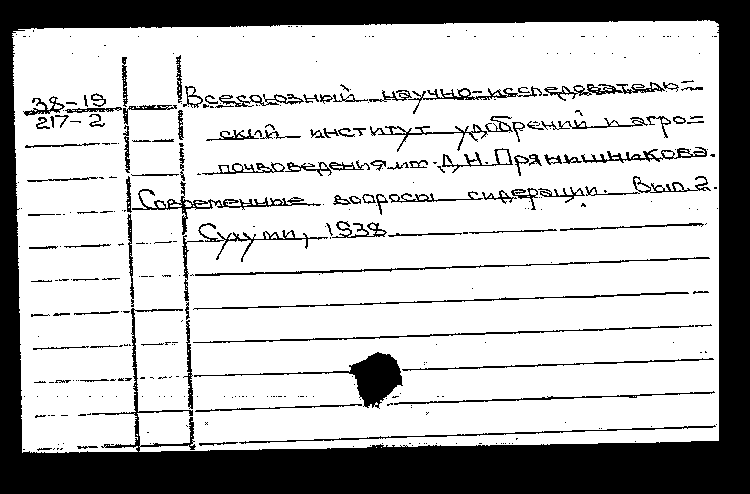 38-19
217-2
Всесоюзный научно-исследователь=
ский институт удобрений и агро=
почвоведения им. Д.Н. Прянишникова.
Современные вопросы сидерации. Вып. 2.
Сухуми, 1938.